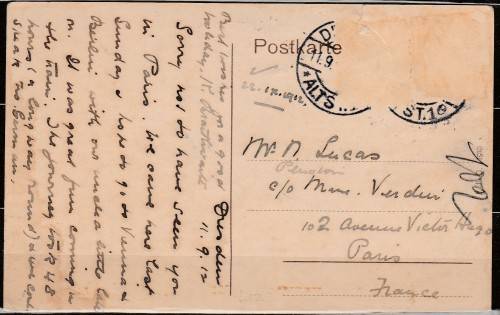 Best wishes for a good
birthday, K. 
Dresden
11.9.12
Sorry not to have seen you
in Paris. We came here last
Sunday & have to go to Vienna &
Berlin with our uncle a little later
on. It was great fun coming in
the train. The journey took 48
hours (a long way round) & we only
speak no German.
Postkarte
11.9
*ALTST.
ST.16
22.IX.1912.
Mr. N. Lucas
Pension
c/o Mme. Verdier
102 Avenue Victor Hugo
Paris
France